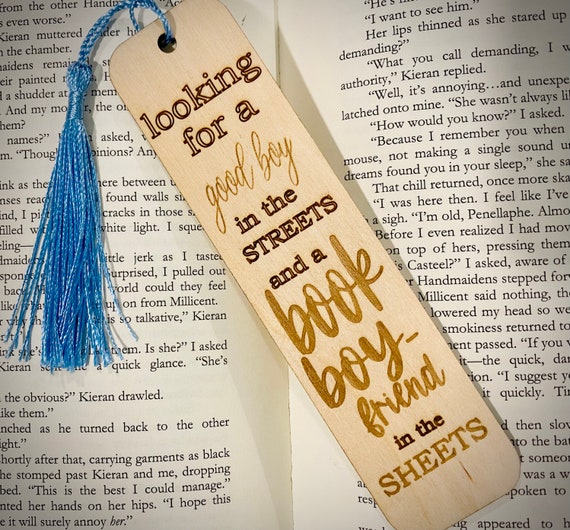 Kieran muttered
the chamber.
than
their painted
a shudder at
And my mother, the
names?" I asked,
"Though opinions? Any
as
here between
found walls
cracks in those
white light. I
little jerk as I tasted
surprised, I pulled out
world could they feel
from Millicent.
is so talkative," Kieran
them. Is she?" I asked
a quick glance. "She's
the obvious?" Kieran drawled.
like them."
as he turned back to the other
night."
shortly after that, carrying garments as black
She stomped past Kieran and me, dropping
bed. "This is the best I could manage."
planted her hands on her hips. "I hope this
it will surely annoy her."
looking
for a
good boy
in the
STREETS
and a
book
boy-
friend
in the
SHEETS
"He's
"I want to see him."
Her lips thinned as she stared up
demanding?"
"What you call demanding, I w
authority," Kieran replied.
"Well, it's annoying…and unexpec
latched onto mine. "She wasn't always lik
"How would you know?" I asked.
"Because I remember you when
mouse, not making a single sound un
dreams found you in your sleep," she sa
That chill returned, once more ska
"I was here then. I feel like I've
a sigh. "I'm old, Penellaphe. Almost
Before I even realized I had mov
top of hers, pressing them
Casteel?" I asked, aware of
Handmaidens stepped forw
Millicent said nothing, the
lowered my head so we
smokiness returned to
passed. "If you w
it—the quick, dar
"I suggest yo
it quickly. Tim
then slow
so
was a w
spoken to
end